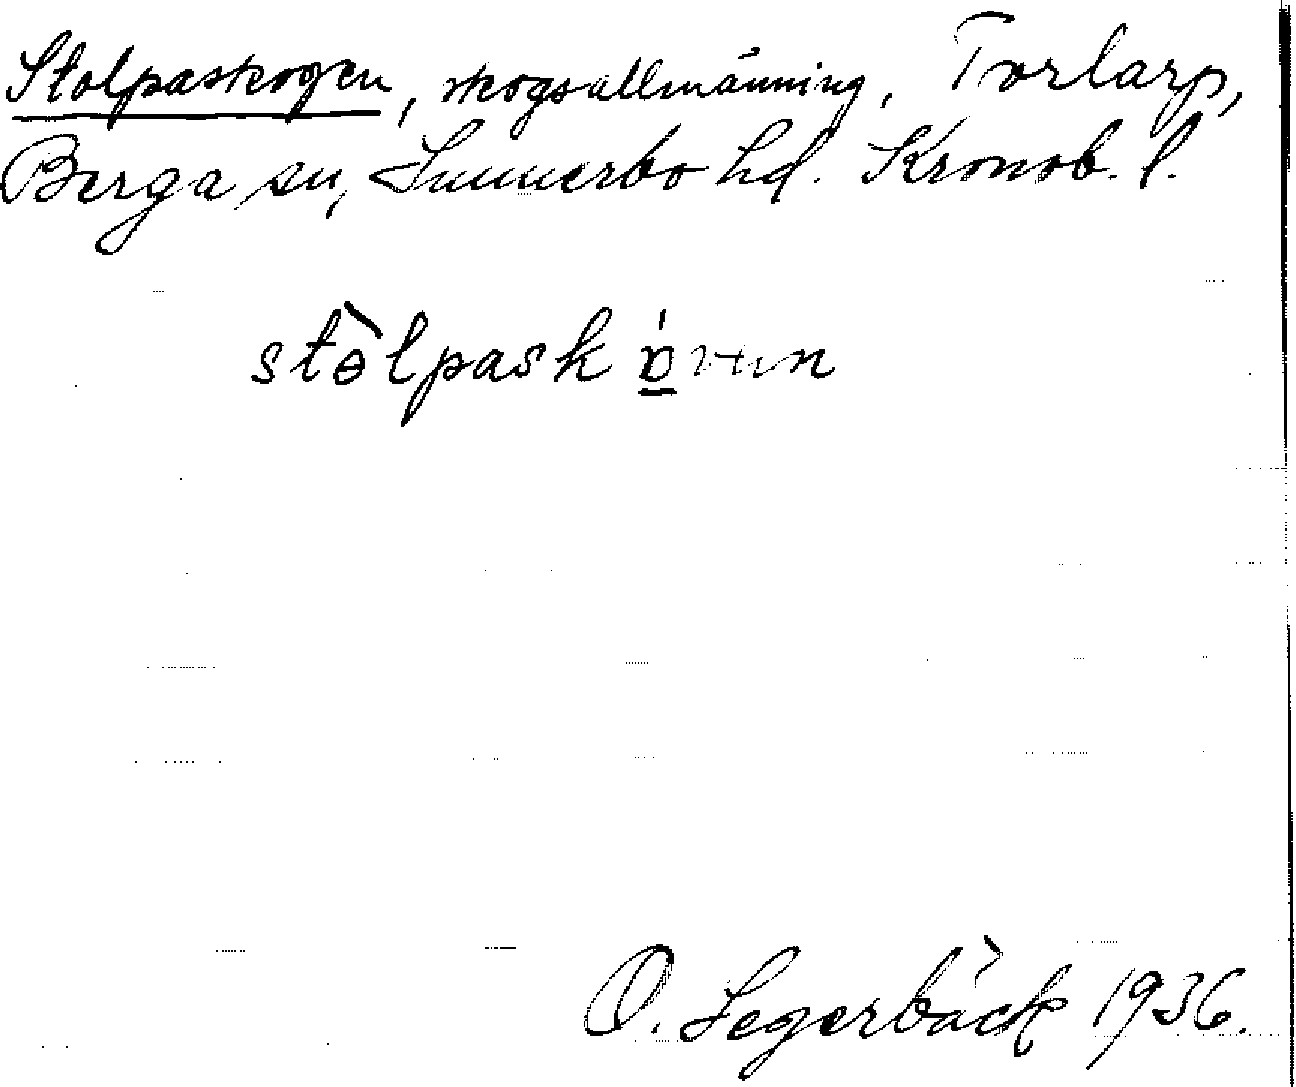 Stolpaskogen, skogsallmänning, Torlarp,
Berga sn, Sunnerbo hd. Kronob. l.
stɵ̀lpask
O. Segerbäck 1936.